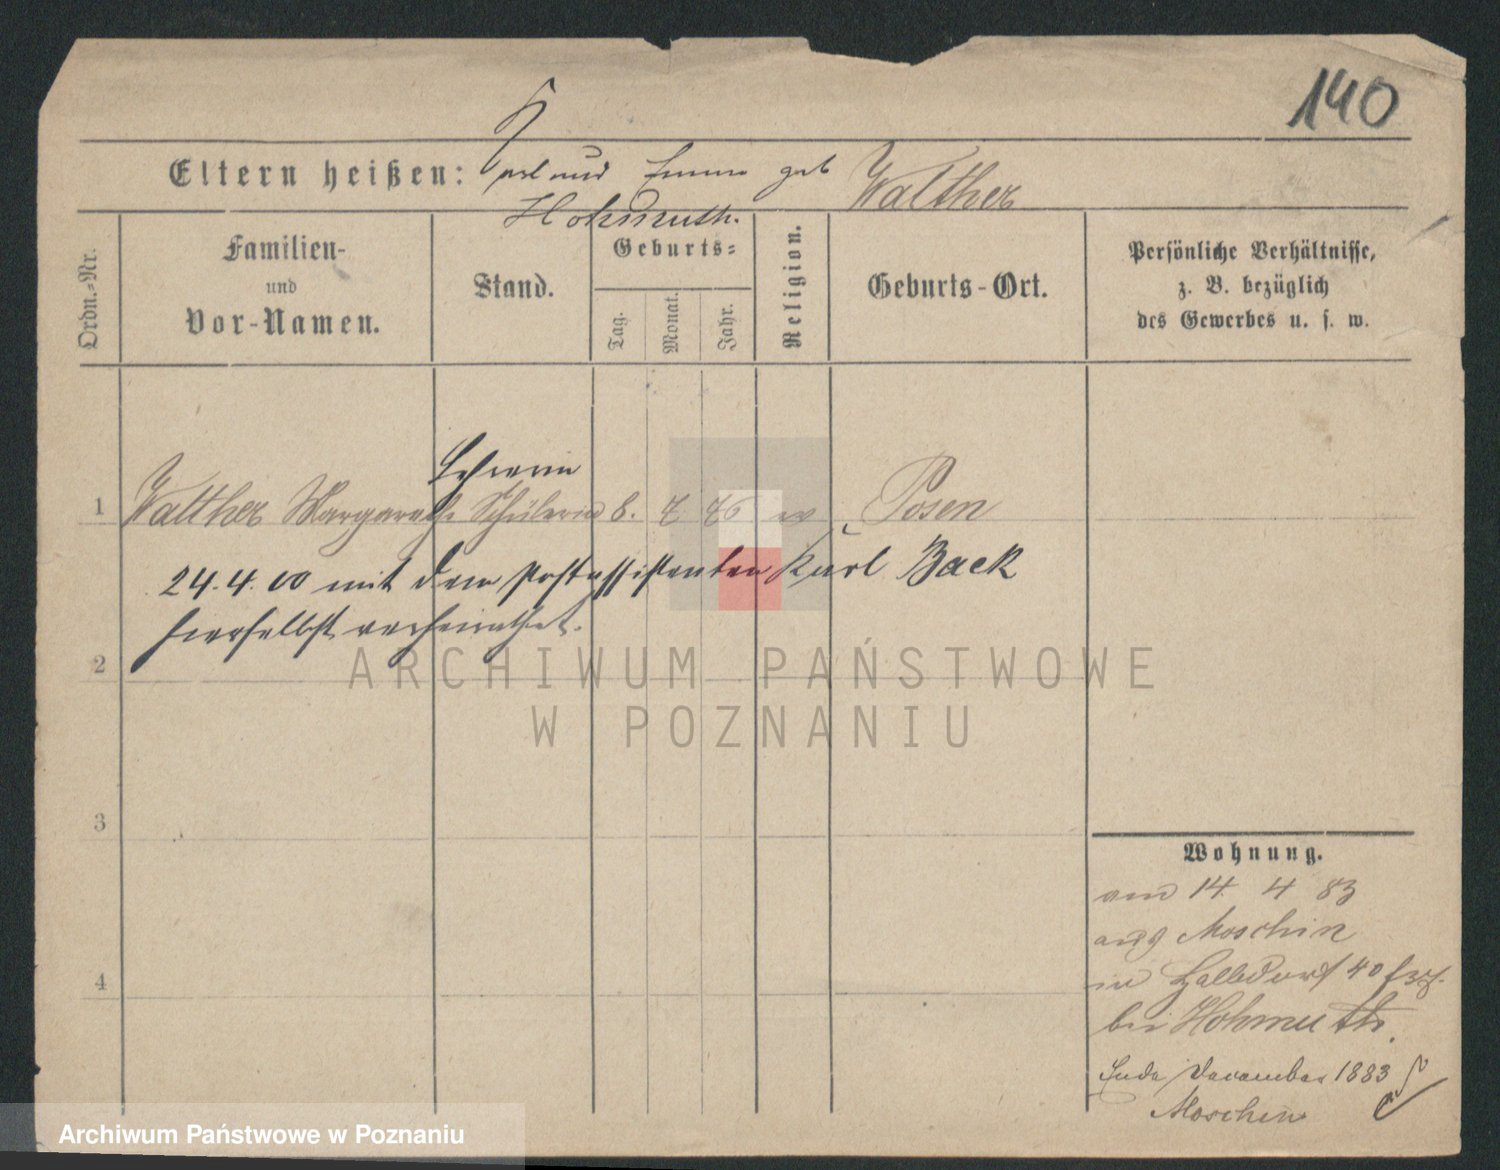 140
Eltern heißen: Karl und Emma geb Walther
Hohmuth.
Ordn.-Nr.
Familien-
und
Vor-Namen.
Stand.
Geburts-
Tag.
Monat.
Jahr.
Religion.
Geburts-Ort.
Persönliche Verhältnisse,
z. B. bezüglich
des Gewerbes u. s. w.
Lehrerin
1 Walther Margarethe Schülerin 8. 7 76 ev Posen
24.4.00 mit dem Postassistenten Karl Back
hierselbst verheirathet.
2
3
4
Wohnung.
am 14 4 83
aus Moschin
in Halbdorf 40
bei Hohmuth.
Ende Dezember 1883
Moschin
ARCHIWUM PAŃSTWOWE
W POZNANIU
Archiwum Państwowe w Poznaniu